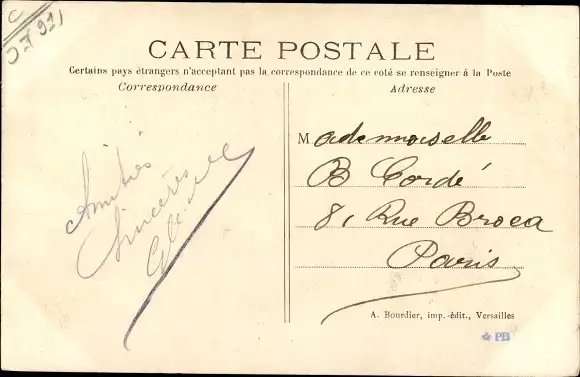 CARTE POSTALE
Certains pays étrangers n'acceptant pas la correspondance de ce coté se renseigner à la Poste
Correspondance
Adresse
Amitiés
Sincères
Mademoiselle
B Cordé
8, Rue Broca
Paris
A. Bourdier, imp.-édit., Versailles
PB